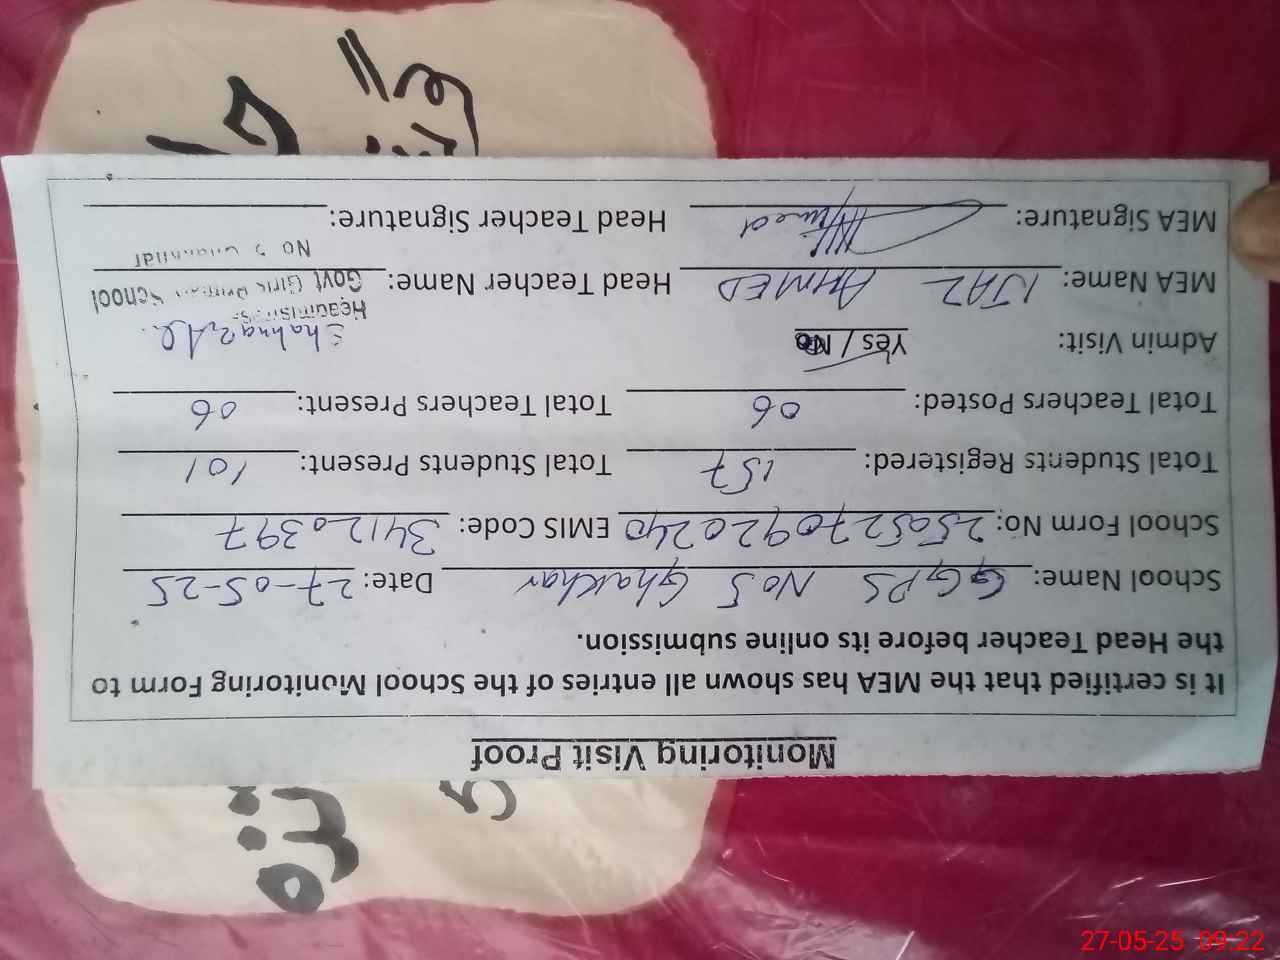 Monitoring Visit Proof
It is certified that the MEA has shown all entries of the School Monitoring Form to
the Head Teacher before its online submission.
School Name: GGPS No 5 Ghakhar Date: 27-05-25
School Form No: 2505270920240 EMIS Code: 34120397
Total Students Registered: 157 Total Students Present: 101
Total Teachers Posted: 06 Total Teachers Present: 06
Admin Visit: Yes / No
MEA Name: IJAZ AHMED Head Teacher Name:
Headmistress
Govt Girls Primary School
MEA Signature: Ahmed Head Teacher Signature:
27-05-25 09:22